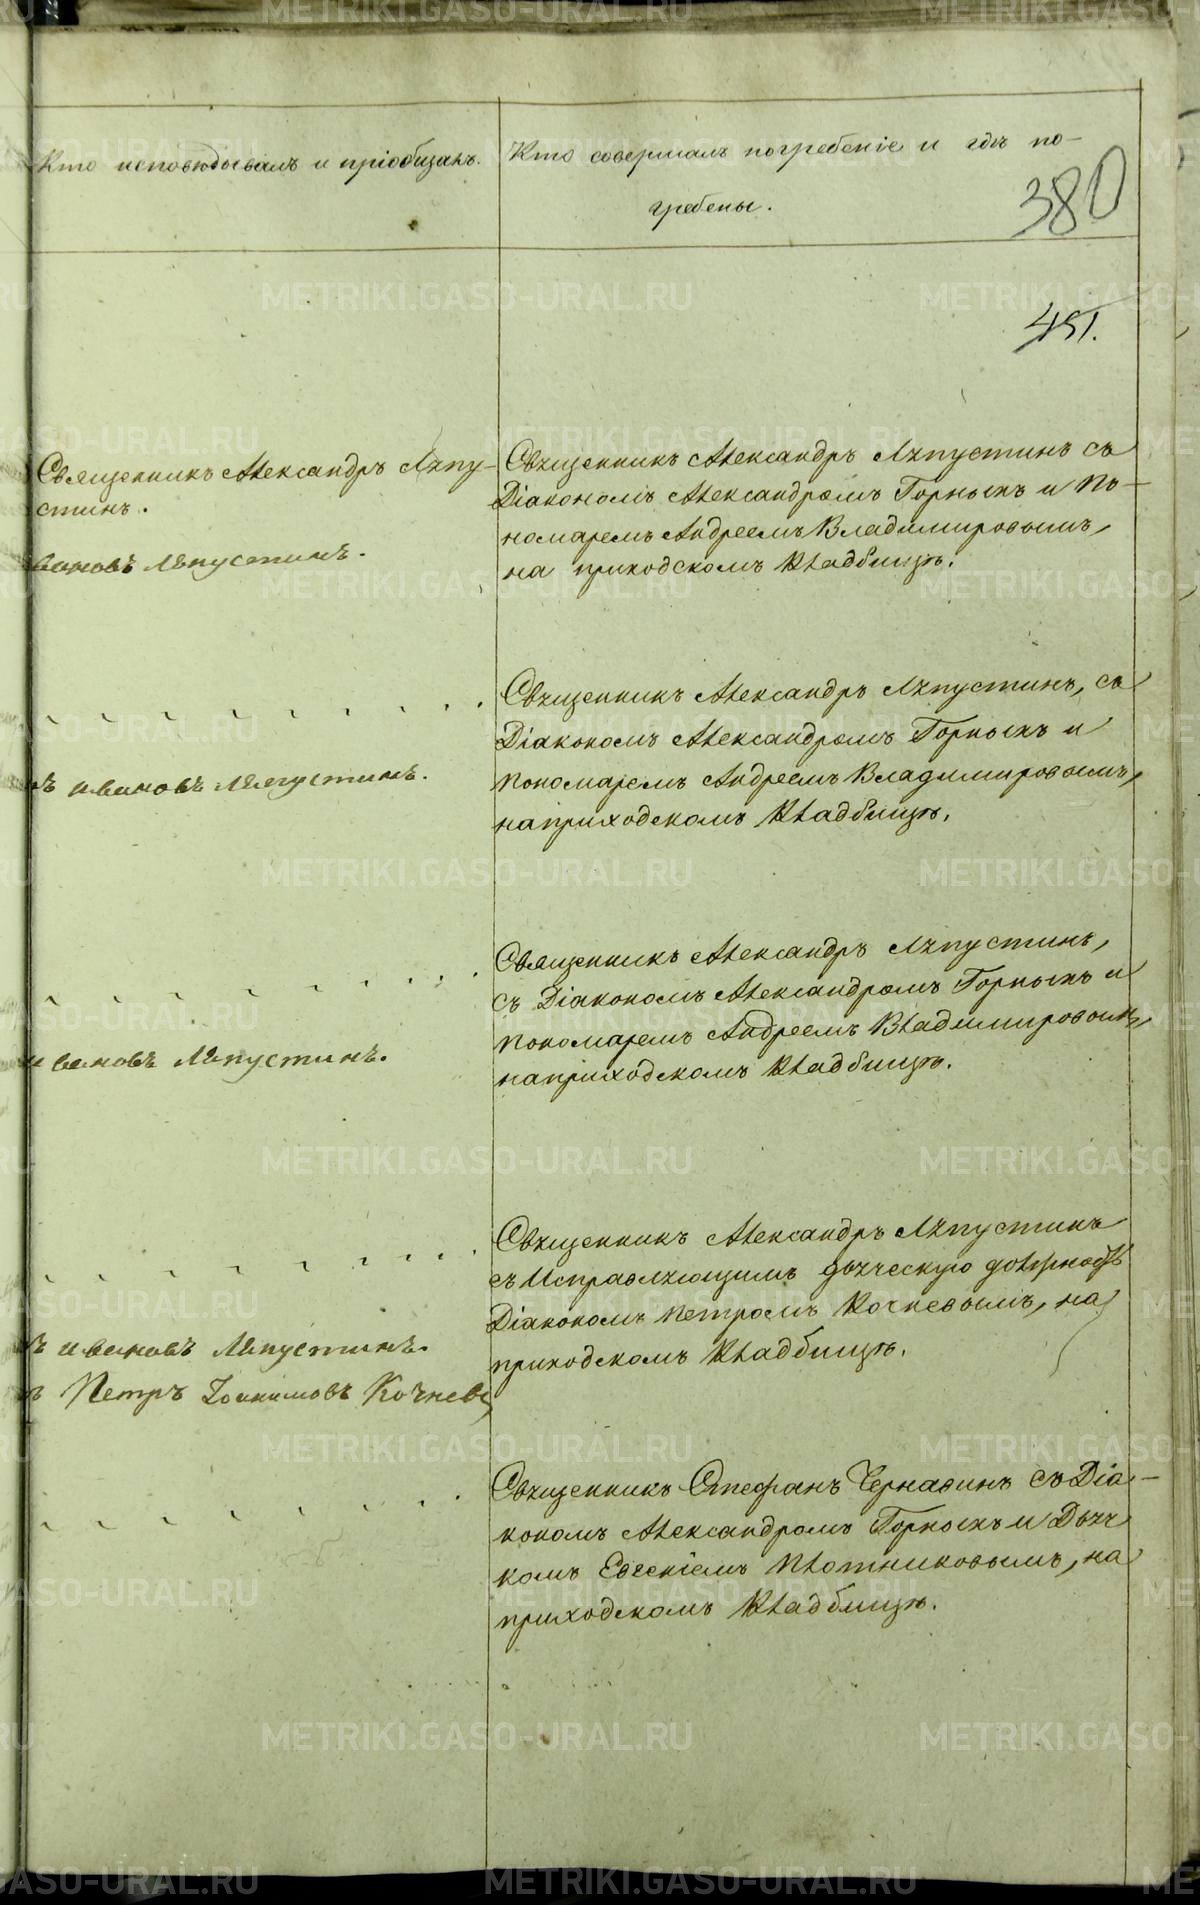 Кто исповѣдывалъ и пріобщалъ.
Кто совершалъ погребеніе и гдѣ по-
гребены.
380
451.
Священникъ Александръ Ляпу-
стинъ.
Священникъ Александръ Ляпустинъ съ
Діакономъ Александромъ Горныхъ и По-
номаремъ Андреемъ Владимировымъ,
на приходскомъ кладбищѣ.
вановъ Ляпустинъ.
Священникъ Александръ Ляпустинъ, съ
Діакономъ Александромъ Горныхъ и
пономаремъ Андреемъ Владимировымъ,
на приходскомъ кладбищѣ.
ъ ивановъ Ляпустинъ.
Священникъ Александръ Ляпустинъ,
съ Діакономъ Александромъ Горныхъ и
пономаремъ Андреемъ Владимировымъ,
на приходскомъ кладбищѣ.
ивановъ Ляпустинъ.
Священникъ Александръ Ляпустинъ
съ Исправляющимъ дьяческую должность
Діакономъ Петромъ Кочневымъ, на
приходскомъ кладбищѣ.
ъ ивановъ Ляпустинъ.
ъ Петръ Іоакимовъ Кочневъ
Священникъ Стефанъ Чернавинъ съ Діа-
кономъ Александромъ Горныхъ и Дьяч
комъ Евгеніемъ Плотниковымъ, на
приходскомъ кладбищѣ.
METRIKI.GASO-URAL.RU